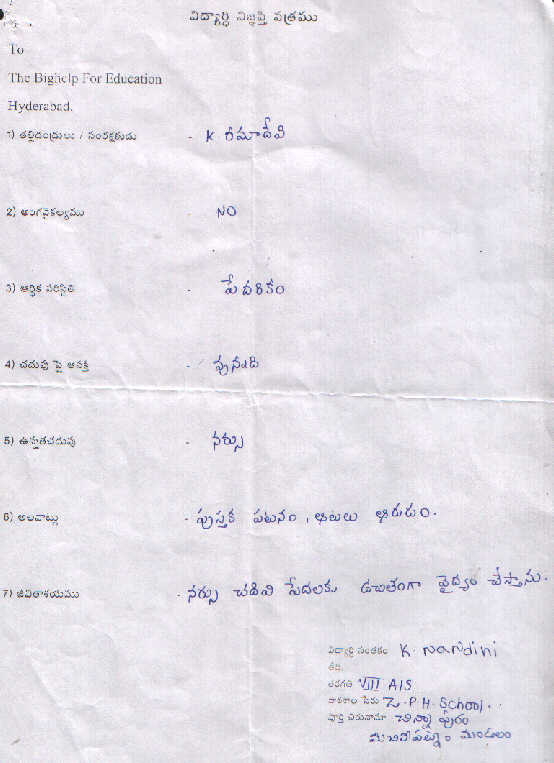 విద్యార్థి విజ్ఞప్తి పత్రము
To
The Bighelp For Education
Hyderabad.
1) తల్లిదండ్రులు / సంరక్షకుడు - K రమాదేవి
2) అంగవైకల్యము - NO
3) ఆర్థిక పరిస్థితి - పేదరికం
4) చదువు పై ఆసక్తి - వున్నది
5) ఉన్నతచదువు - నర్సు
6) అలవాట్లు - పుస్తక పఠనం, ఆటలు ఆడుడం.
7) జీవితాశయము - నర్సు చదివి పేదలకు ఉచితంగా వైద్యం చేస్తాను.
విద్యార్థి సంతకం K. Nandini
తేది.
తరగతి VIII A/S
పాఠశాల పేరు Z.P.H. School.
పూర్తి చిరునామా చిన్నాపురం
మచిలీపట్నం మండలం